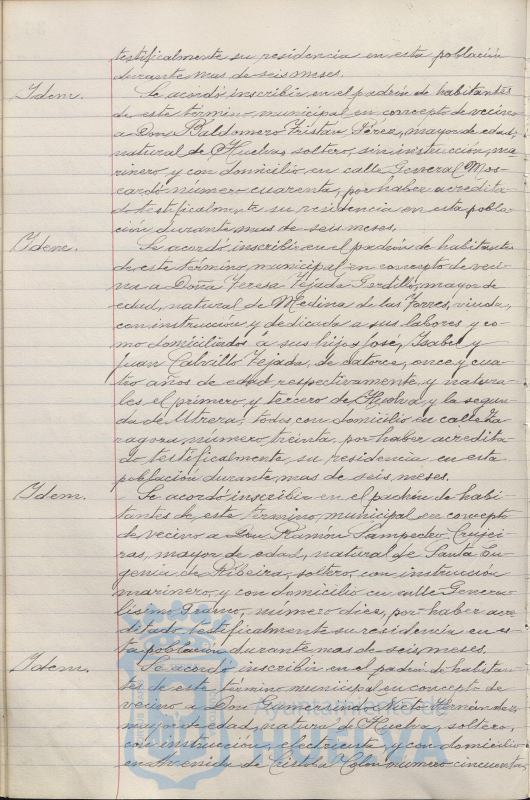 testificalmente su residencia en esta población
durante mas de seis meses.
Idem. Se acordó inscribir en el padrón de habitantes
de este término municipal en concepto de vecino
a Don Baldomero Tristan Pérez, mayor de edad,
natural de Huelva, soltero, sin instrucción, ma-
rinero y con domicilio en calle General Mos-
cardó número cuarenta, por haber acredita-
do testificalmente su residencia en esta pobla-
ción durante mas de seis meses.
Idem. Se acordó inscribir en el padrón de habitantes
de este término municipal en concepto de veci-
na a Doña Teresa Tejada Gordillo, mayor de
edad, natural de Medina de las Torres, viuda,
con instrucción y dedicada a sus labores y co-
mo domiciliados a sus hijos José, Isabel y
Juan Calvillo Tejada, de catorce, once y cua-
tro años de edad respectivamente y natura-
les el primero y tercero de Huelva y la segun-
da de Utrera, todos con domicilio en calle Za-
ragoza, número treinta, por haber acredita-
do testificalmente su residencia en esta
población durante mas de seis meses.
Idem. Se acordó inscribir en el padrón de habi-
tantes de este término municipal en concepto
de vecino a Don Ramón Sampedro
mayor de edad, natural de Santa Eu-
genia de Ribeira, soltero, con instrucción
marinero y con domicilio en calle Genera-
lísimo Franco, número diez, por haber acre-
ditado testificalmente su residencia en es-
ta población durante mas de seis meses.
Idem. Se acordó inscribir en el padrón de habitan-
tes de este término municipal en concepto de
vecino a Don Gumersindo Nieto Hernández,
mayor de edad, natural de Huelva, soltero,
con instrucción, electricista y con domicilio
en Avenida de Cristobal Colon número cincuenta,
HUELVA